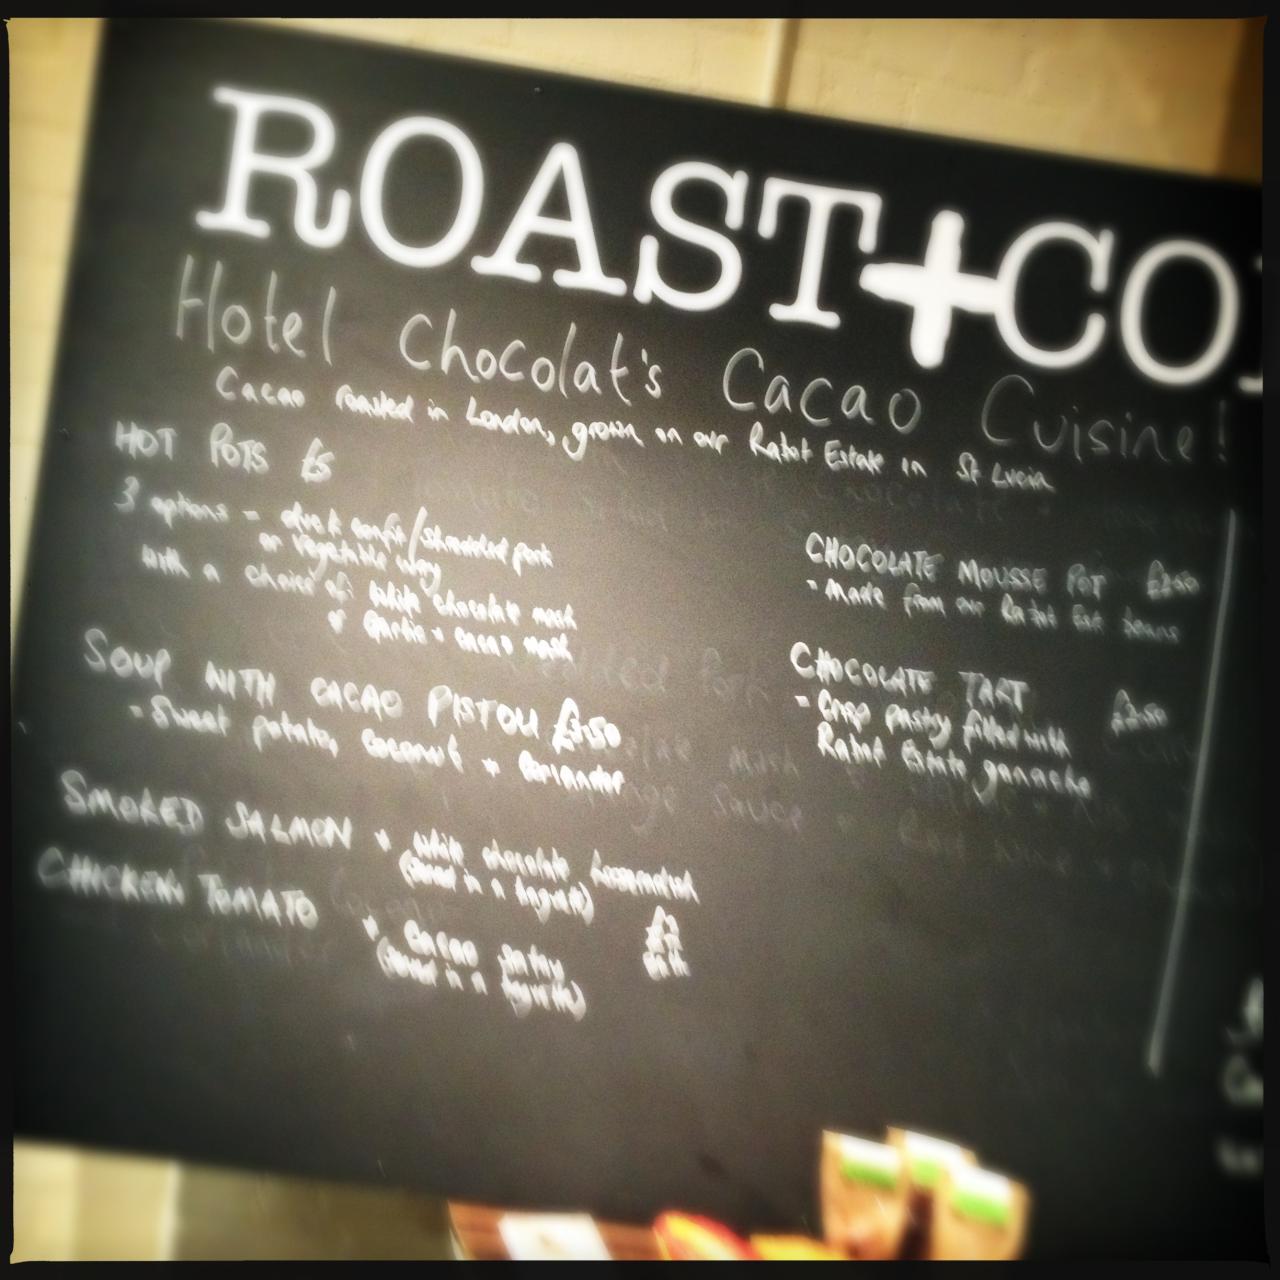 ROAST+CO
Hotel Chocolat's Cacao Cuisine!
Cacao roasted in London, grown on our Rabot Estate in St Lucia
HOT POTS £5
3 options - duck confit/shredded pork
or vegetable
with a choice of: white chocolate mash
or garlic + cacao mash
SOUP WITH CACAO PISTOU £3.50
- Sweet potato, coconut + coriander
SMOKED SALMON + white chocolate horseradish
(served in a baguette)
CHICKEN TOMATO + cacao satay
(served in a baguette)
each
CHOCOLATE MOUSSE POT £2.50
- Made from our Rabot Est beans
CHOCOLATE TART £2.50
- Crisp pastry filled with
Rabot Estate ganache